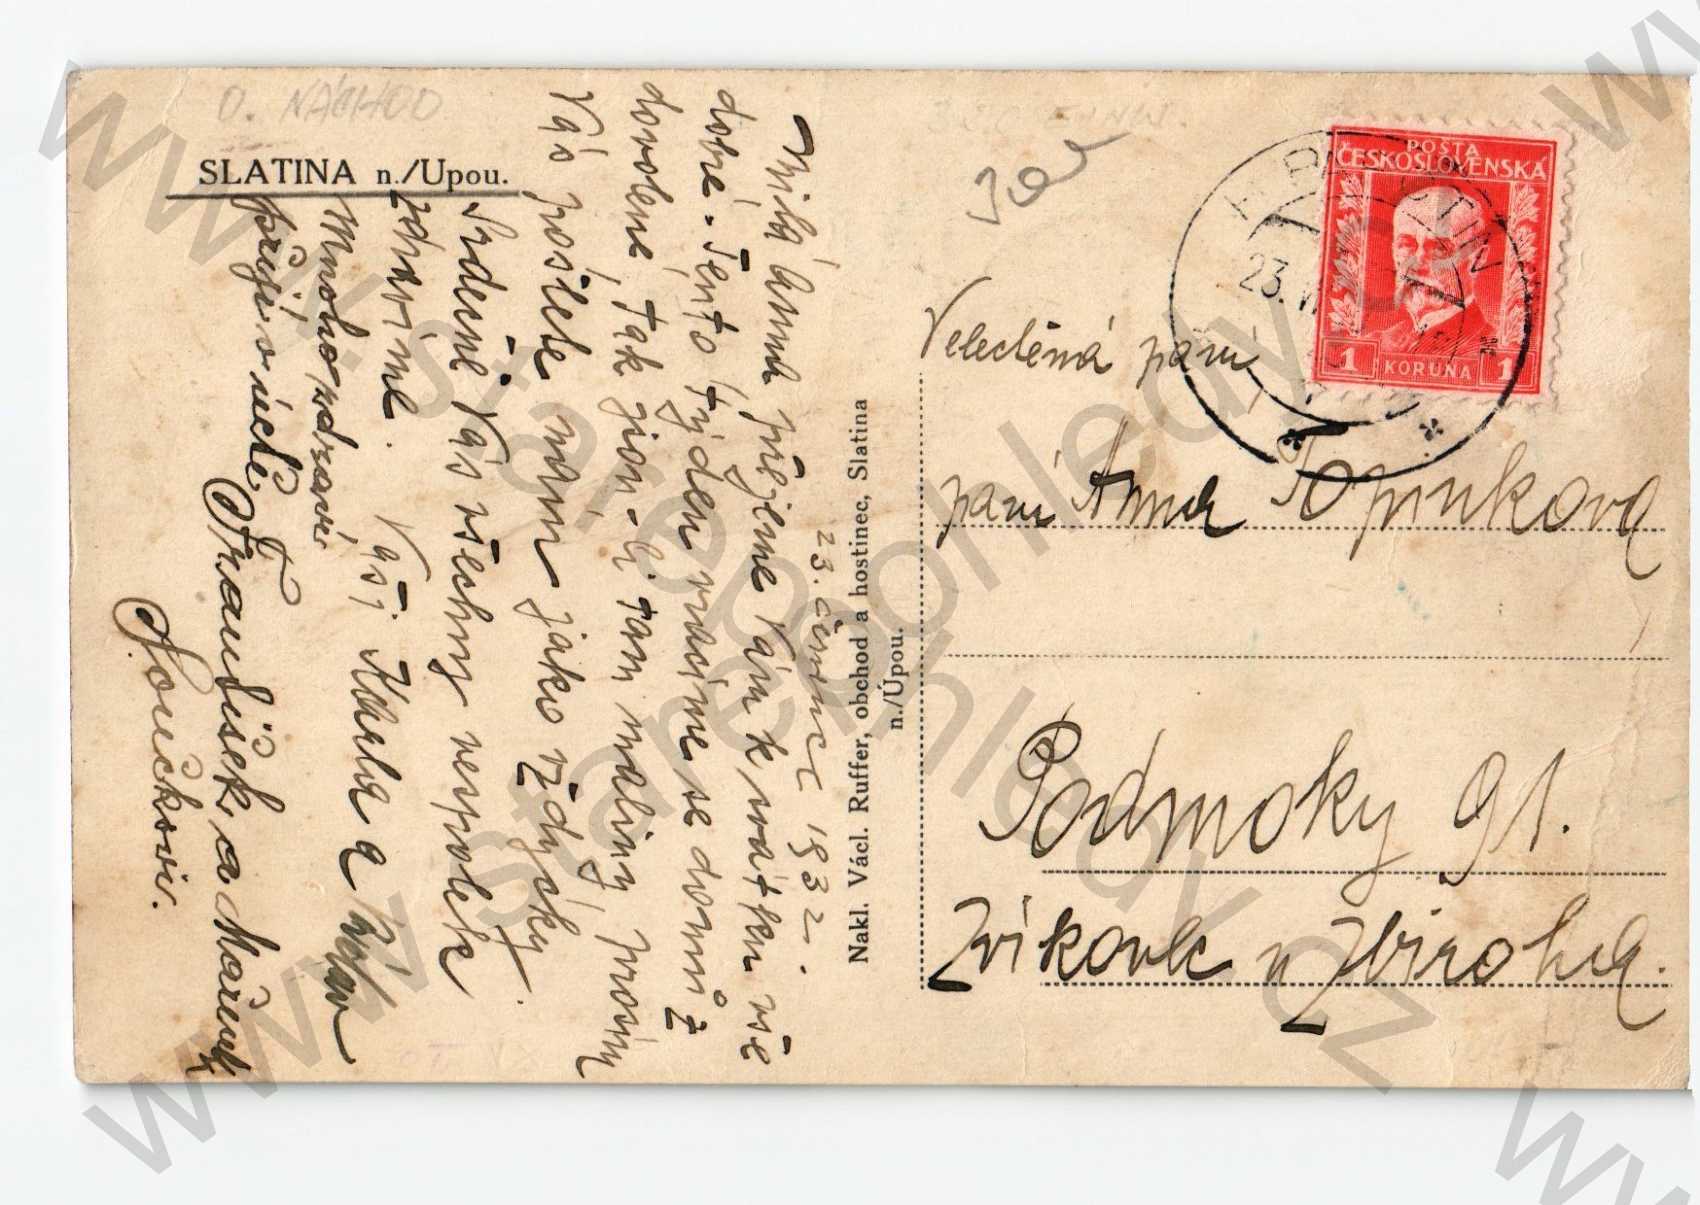 O. NÁCHOD
SLATINA n./Úpou.
23. červnce 1932.
Milá Anna přejeme Vám k svátku vše
dobré. Tento týden vrácíme se domů z
dovolené, tak jsou-li tam maliny, prosím
Vás pošlete nám jako vždycky.
Srdečně Vás všechny vespolek
zdravíme. Vaši Karla a
Mnoho pozdravů
přeji v úctě Frantisek a Mařenk
Součkovi.
Nakl. Václ. Ruffer, obchod a hostinec, Slatina
n./Úpou.
POŠTA
ČESKOSLOVENSKÁ
1 KORUNA 1
23. V
Velectěná paní
paní Anna Topinkova
Podmoky 91.
Zvíkovec u Zbiroha.
www.starepohledy.cz